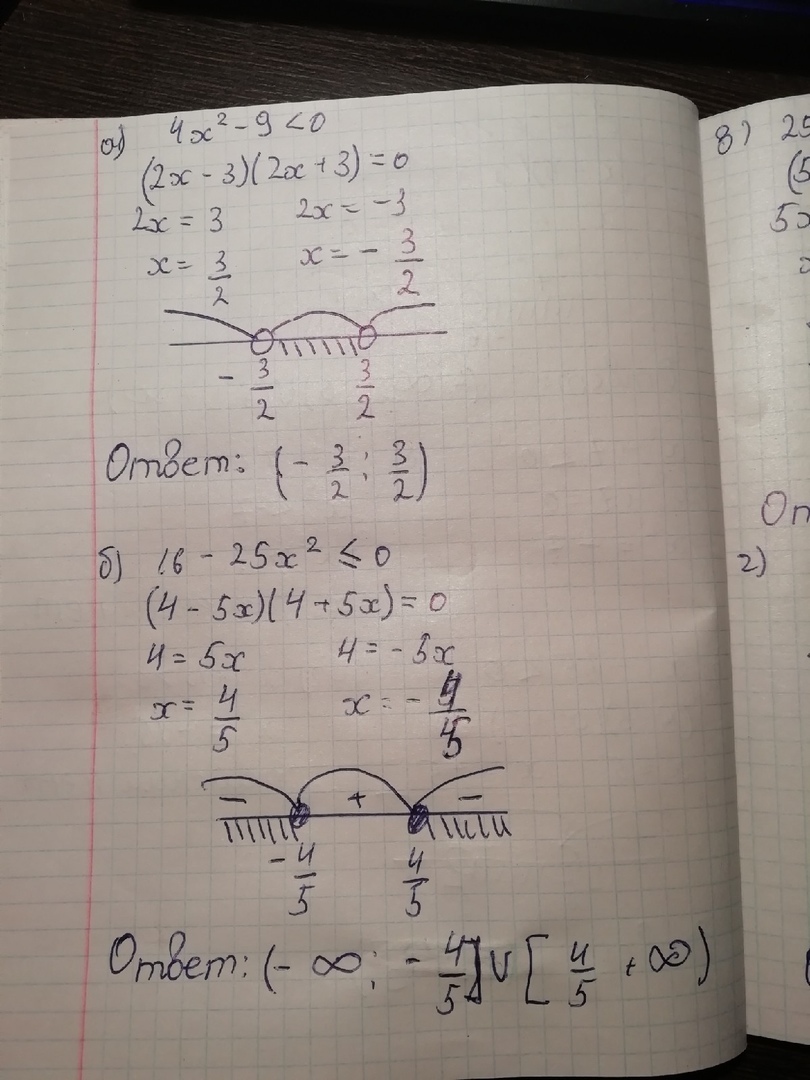 а) 4x² - 9 < 0
(2x - 3)(2x + 3) = 0
2x = 3 2x = -3
x = 3/2 x = - 3/2
- 3/2 3/2
Ответ: (- 3/2 ; 3/2)
б) 16 - 25x² ≤ 0
(4 - 5x)(4 + 5x) = 0
4 = 5x 4 = -5x
x = 4/5 x = - 4/5
- + -
- 4/5 4/5
Ответ: (- ∞ ; - 4/5] ∪ [ 4/5 + ∞)
в) 25
(5
5x
x
От
г)